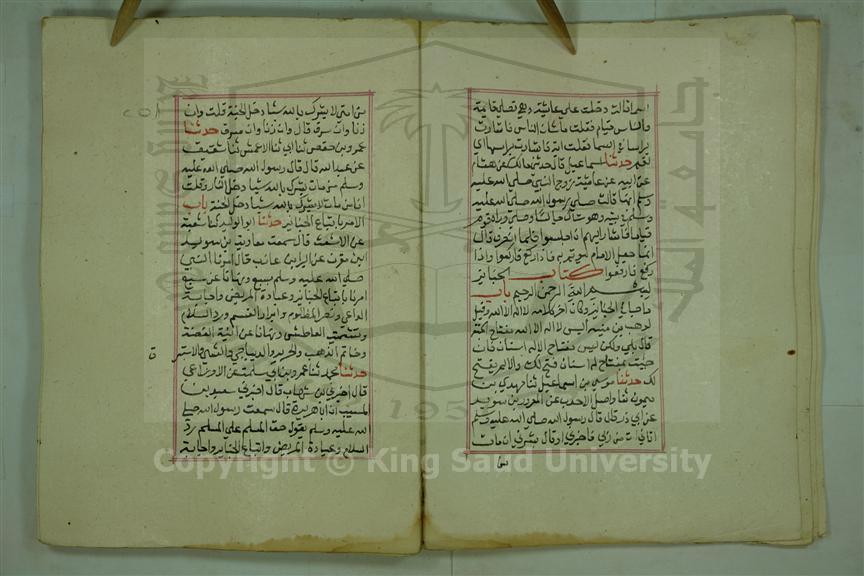 اسما قالت دخلت علي عايشة وهي تصلي قايمة
والناس قيام فقلت ما شان الناس فاشارت
براسها الي السما فقلت اية فاشارت براسها اي
نعم حدثنا اسماعيل قال حدثني مالك عن هشام
عن ابيه عن عايشة زوج النبي صلي الله عليه
وسلم انها قالت صلي رسول الله صلي الله عليه
وسلم في بيته وهو شاك جالسا وصلي وراه قوم
قياما فاشار اليهم ان اجلسوا فلما انصرف قال
انما جعل الامام ليوتم به فاذا ركع فاركعوا واذا
رفع فارفعوا كتاب الجنايز
بسم الله الرحمن الرحيم باب
ما جا في الجنايز ومن كان اخر كلامه لا اله الا الله وقيل
لوهب بن منبه اليس لا اله الا الله مفتاح الجنة
قال بلي ولكن ليس مفتاح الا له اسنان فان
جيت بمفتاح له اسنان فتح لك والا لم يفتح
لك حدثنا موسي بن اسماعيل ثنا مهدي بن
ميمون ثنا واصل الاحدب عن المعرور بن سويد
عن ابي ذر قال قال رسول الله صلي الله عليه وسلم
اتاني ات من ربي فاخبرني او قال بشرني ان من مات
من
من امتي لا يشرك بالله شيا دخل الجنة قلت وان
زنا وان سرق قال وان زنا وان سرق حدثنا
عمرو بن حفص ثنا ابي ثنا الاعمش ثنا شقيق
عن عبد الله قال قال رسول الله صلي الله عليه
وسلم من مات يشرك بالله شيا دخل النار وقلت
انا من مات لا يشرك بالله شيا دخل الجنة باب
الامر باتباع الجنايز حدثنا ابو الوليد ثنا شعبة
عن الاشعث قال سمعت معاوية بن سويد
ابن مقرن عن البرا بن عازب قال امرنا النبي
صلي الله عليه وسلم بسبع ونهانا عن سبع
امرنا باتباع الجنايز وعيادة المريض واجابة
الداعي ونصر المظلوم وابرار القسم ورد السلام
وتشميت العاطس ونهانا عن انية الفضة
وخاتم الذهب والحرير والديباج والقسي والاستبر
ق
حدثنا محمد ثنا عمرو بن ابي سلمة عن الاوزاعي
قال اخبرني بن شهاب قال اخبرني سعيد بن
المسيب ان ابا هريرة قال سمعت رسول الله صلي
الله عليه وسلم يقول حق المسلم علي المسلم رد
السلام وعيادة المريض واتباع الجنايز واجابة
جامعة الملك سعود
1957
Copyright © King Saud University